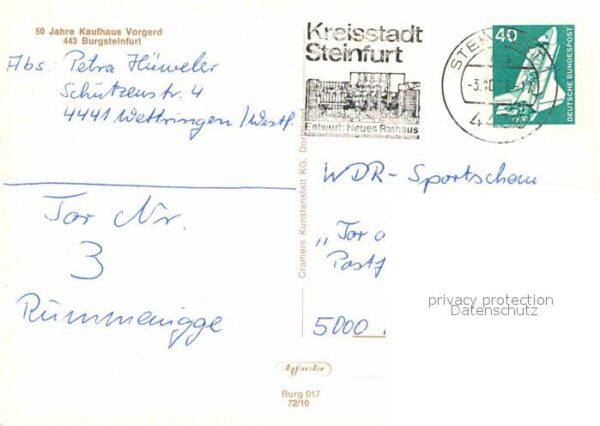 50 Jahre Kaufhaus Vorgerd
443 Burgsteinfurt
Abs: Petra Hüweler
Schützenstr. 4
4441 Wettringen /Westf.
Tor Nr.
3
Rummenigge
Kreisstadt
Steinfurt
Entwurf: Neues Rathaus
40
DEUTSCHE BUNDESPOST
Cramers Kunstanstalt KG, Dortmund
WDR- Sportschau
„Tor
Postf
5000
privacy protection
Datenschutz
Burg 017
72/10